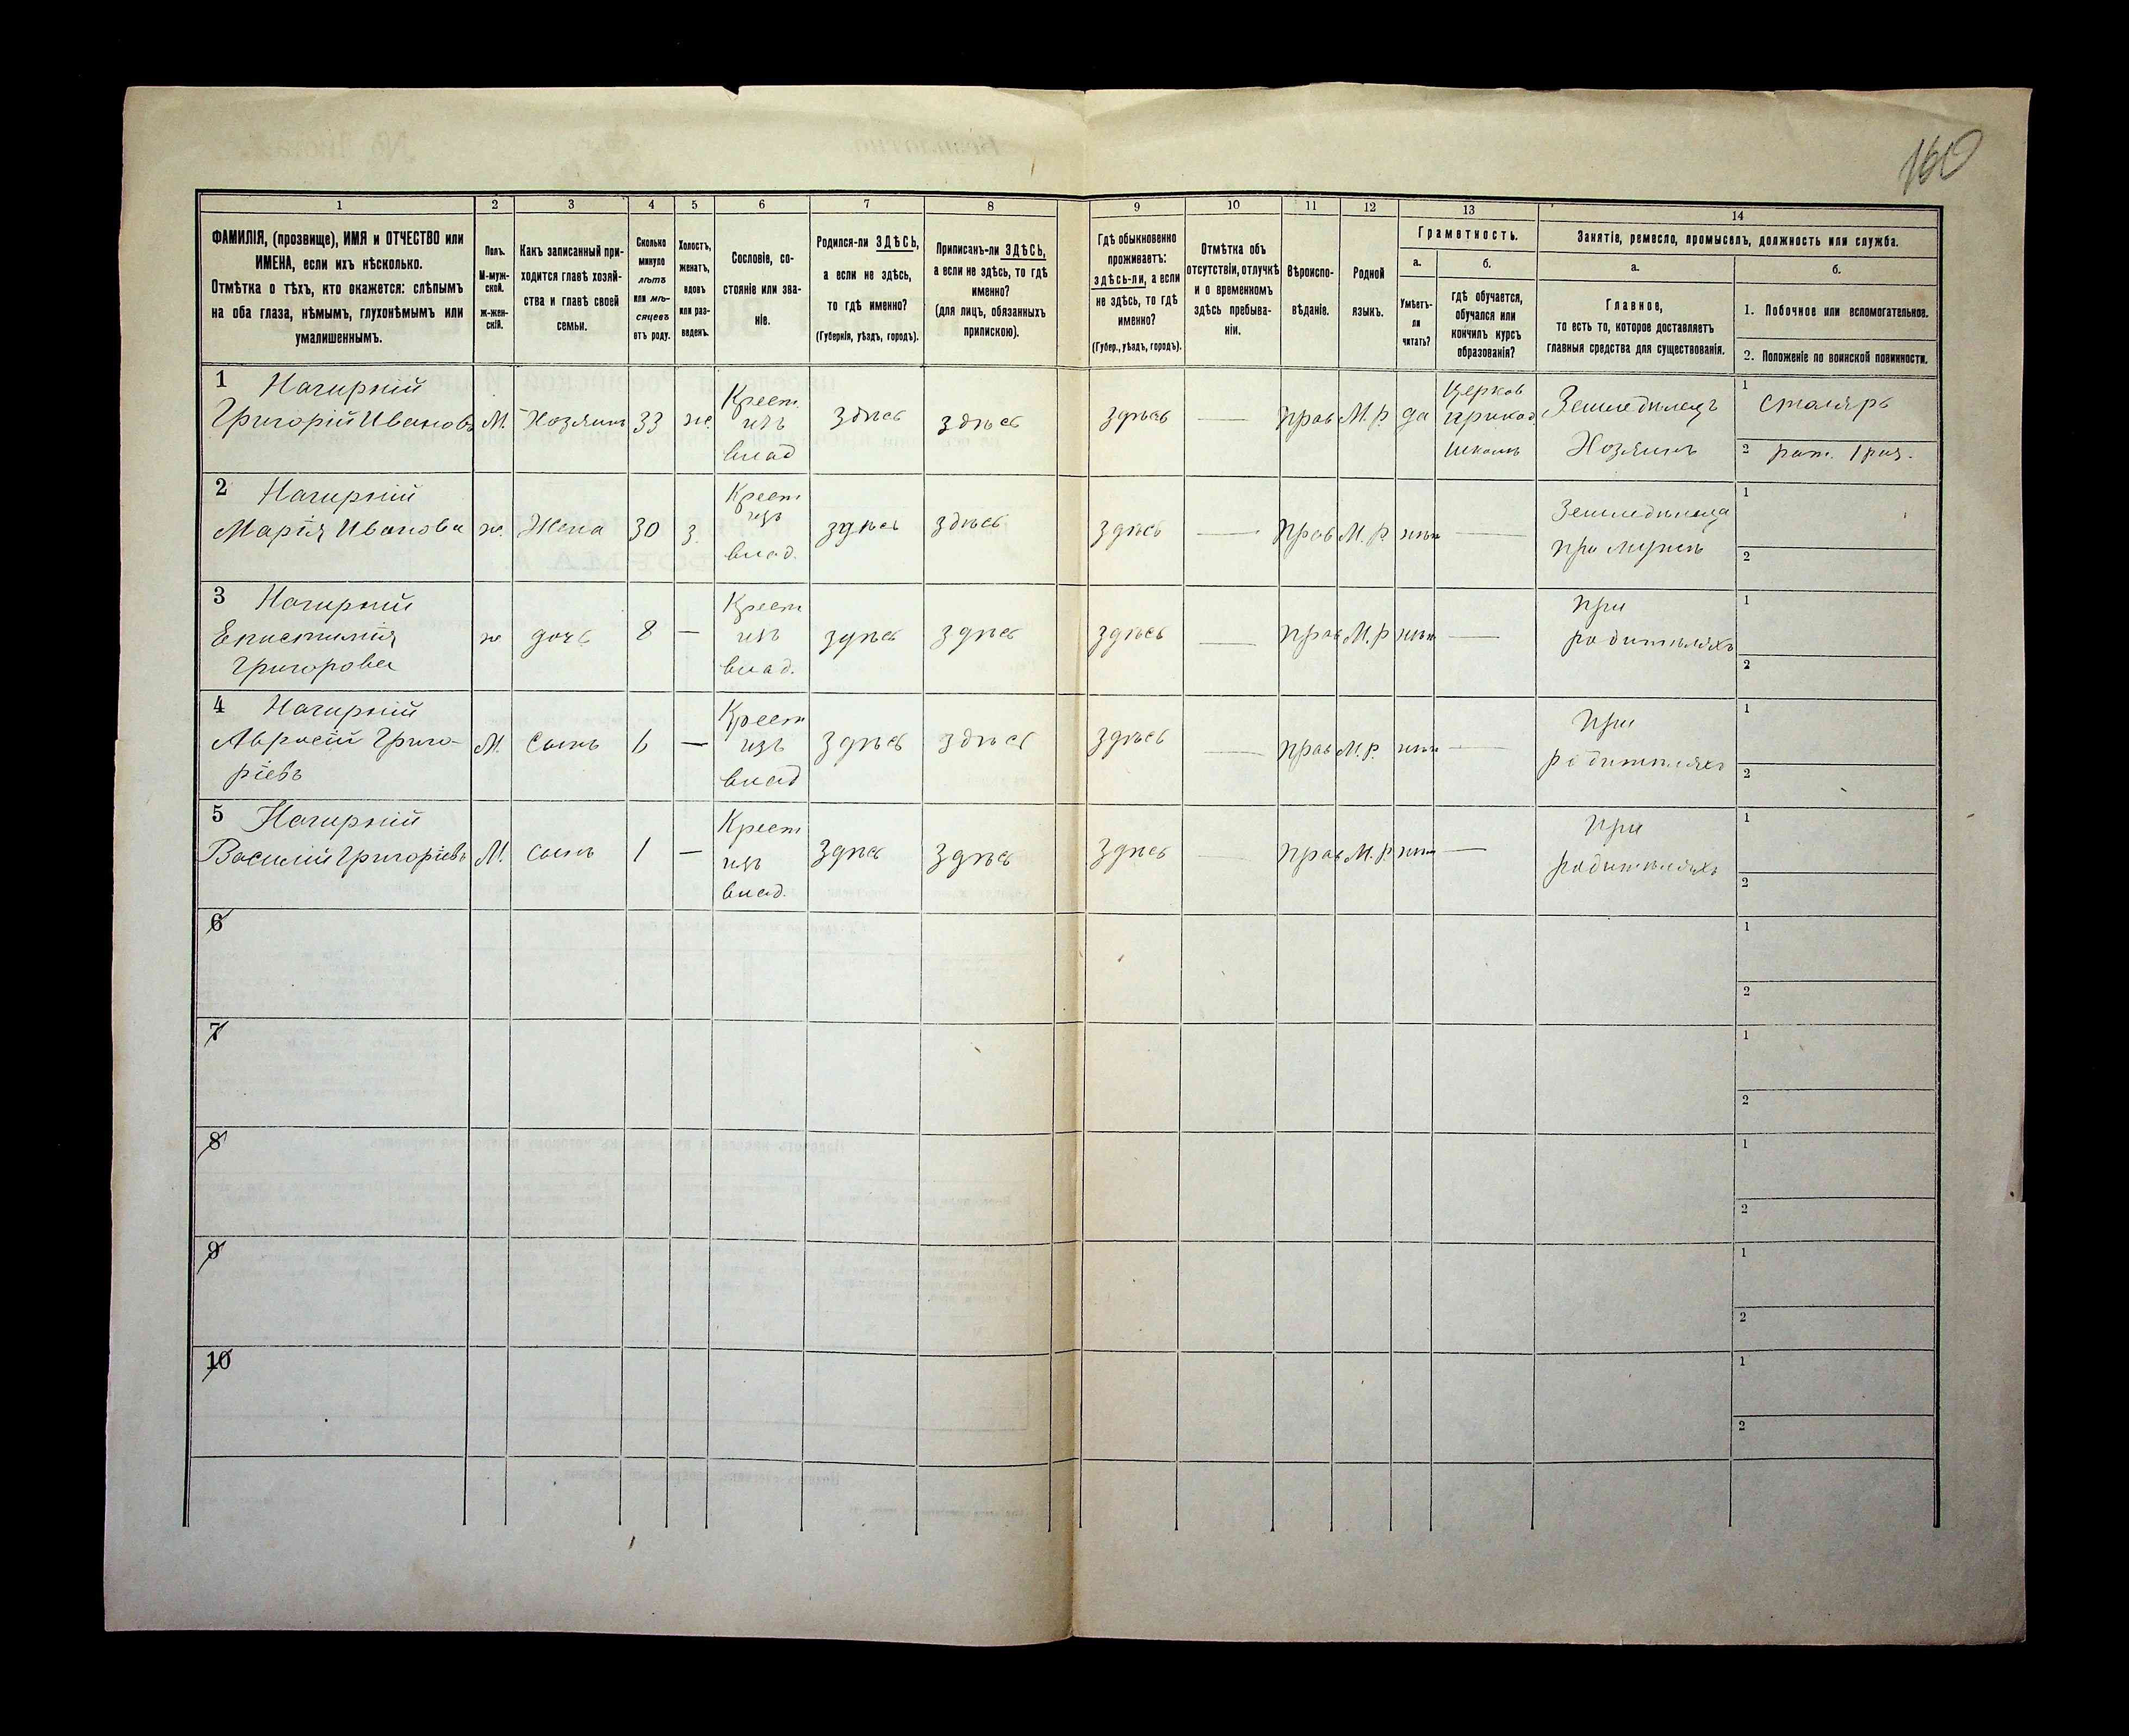 160
1 2 3 4 5 6 7 8 9 10 11 12 13 14
ФАМИЛІЯ, (прозвище), ИМЯ и ОТЧЕСТВО или
ИМЕНА, если ихъ нѣсколько.
Отмѣтка о тѣхъ, кто окажется: слѣпымъ
на оба глаза, нѣмымъ, глухонѣмымъ или
умалишеннымъ.
Полъ.
М-муж-
ской.
ж-жен-
скій.
Какъ записанный при-
ходится главѣ хозяй-
ства и главѣ своей
семьи.
Сколько
минуло
лѣтъ
или мѣ-
сяцевъ
отъ роду.
Холостъ,
женатъ,
вдовъ
или раз-
веденъ.
Сословіе, со-
стояніе или зва-
ніе.
Родился-ли ЗДѢСЬ,
а если не здѣсь,
то гдѣ именно?
(Губернія, уѣздъ, городъ).
Приписанъ-ли ЗДѢСЬ,
а если не здѣсь, то гдѣ
именно?
(для лицъ, обязанныхъ
припискою).
Гдѣ обыкновенно
проживаетъ:
здѣсь-ли, а если
не здѣсь, то гдѣ
именно?
(Губер., уѣздъ, городъ).
Отмѣтка объ
отсутствіи, отлучкѣ
и о временномъ
здѣсь пребыва-
ніи.
Вѣроиспо-
вѣданіе.
Родной
языкъ.
Грамотность.
а.
Умѣетъ-
ли
читать?
б.
гдѣ обучается,
обучался или
кончилъ курсъ
образованія?
Занятіе, ремесло, промыселъ, должность или служба.
а.
Главное,
то есть то, которое доставляетъ
главныя средства для существованія.
б.
1. Побочное или вспомогательное.
2. Положеніе по воинской повинности.
1 Нагирній
Григорій Ивановъ М. Хозяинъ 33 ж. Крест. изъ влад здѣсь здѣсь здѣсь — прав М.Р. да Церков приход школѣ Земледѣлецъ Хозяинъ 1 столяръ
2 рат. 1 раз.
2 Нагирній
Марія Иванова ж. Жена 30 з. Крест изъ влад. здѣсь здѣсь здѣсь — прав М.Р. нѣт — при мужѣ 1
2
3 Нагирній
Епистимія
Григорова ж дочь 8 — Крест изъ влад. здѣсь здѣсь здѣсь — прав М.Р нѣт — при родителяхъ 1
2
4 Нагирній
Григо-
ріевъ М. сынъ 6 — Крест изъ влад здѣсь здѣсь здѣсь — прав М.Р. нѣт — при родителяхъ 1
2
5 Нагирній
Василій Григоріевъ М. сынъ 1 — Крест изъ влад. здѣсь здѣсь здѣсь — прав М.Р. нѣт — при родителяхъ 1
2
6 1
2
7 1
2
8 1
2
9 1
2
10 1
2